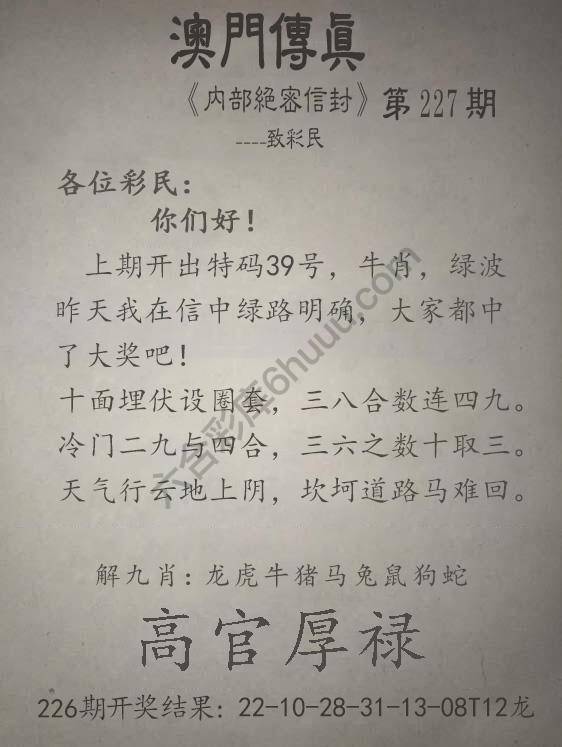 澳門傳眞
《内部絕密信封》第227期
----致彩民
各位彩民：
你们好！
上期开出特码39号，牛肖，绿波
昨天我在信中绿路明确，大家都中
了大奖吧！
十面埋伏设圈套，三八合数连四九。
冷门二九与四合，三六之数十取三。
天气行云地上阴，坎坷道路马难回。
解九肖：龙虎牛猪马兔鼠狗蛇
高官厚禄
226期开奖结果：22-10-28-31-13-08T12龙
六合彩库6huuu.com